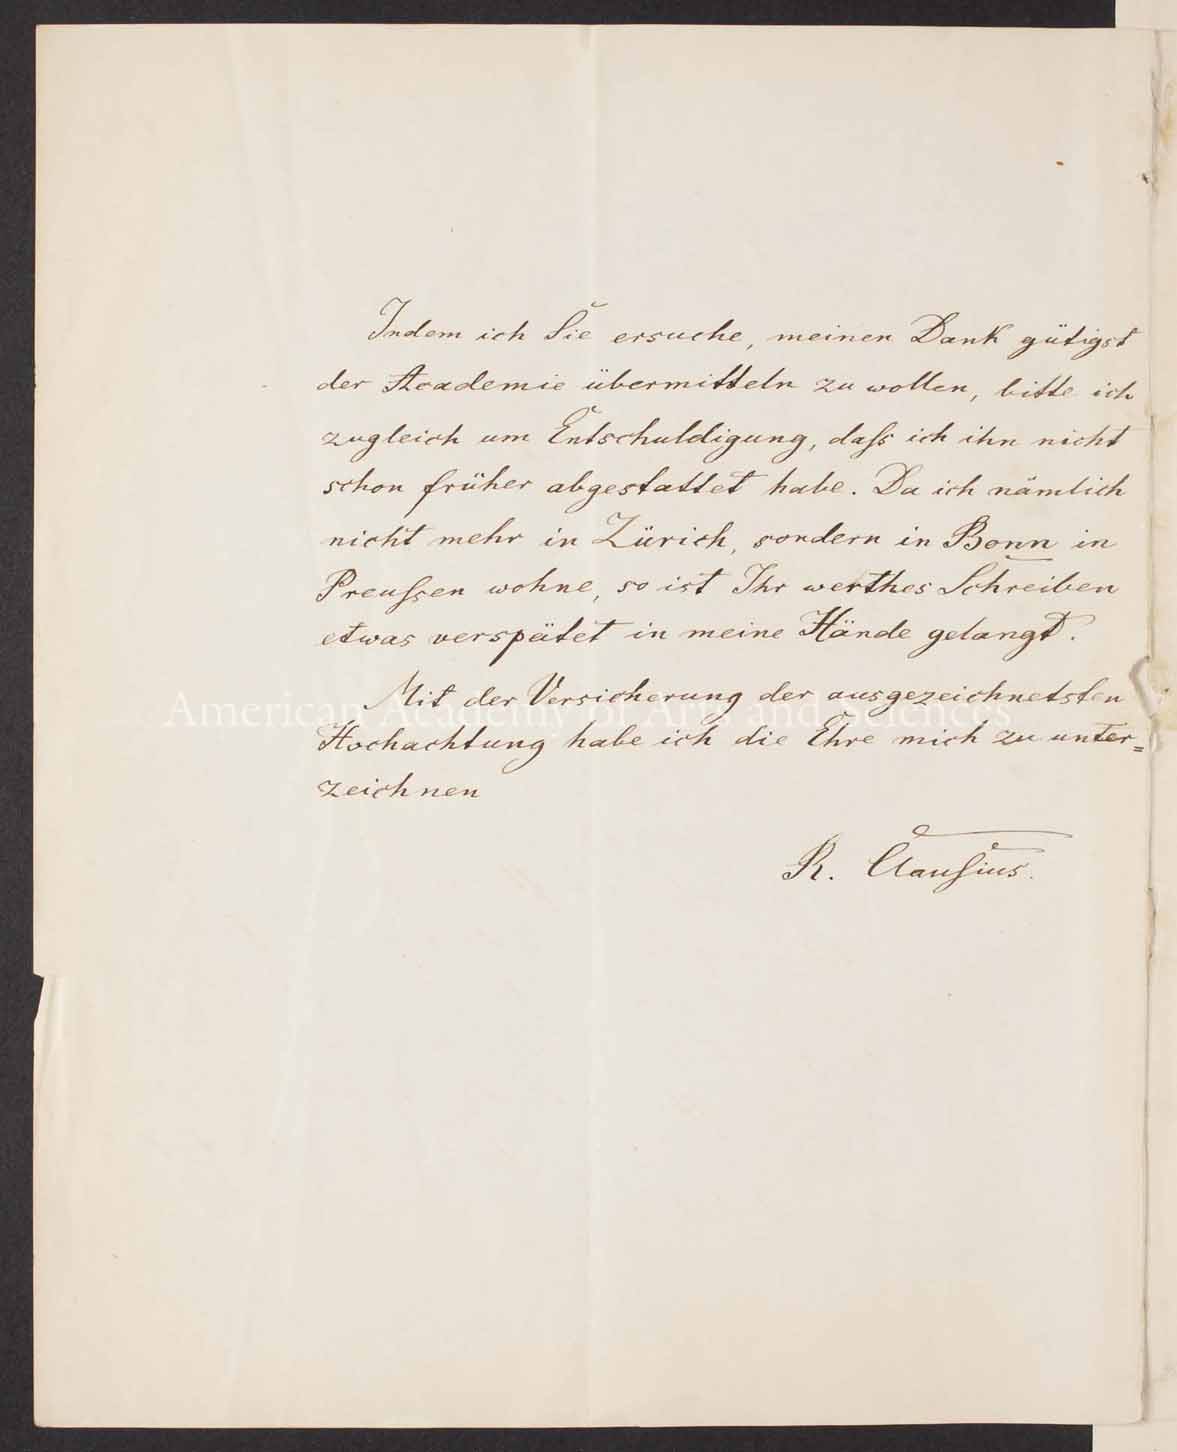 Indem ich Sie ersuche, meinen Dank gütigst
der Academie übermitteln zu wollen, bitte ich
zugleich um Entschuldigung, daſs ich ihn nicht
schon früher abgestattet habe. Da ich nämlich
nicht mehr in Zürich, sondern in Bonn in
Preuſsen wohne, so ist Ihr werthes Schreiben
etwas verspätet in meine Hände gelangt.
Mit der Versicherung der ausgezeichnetsten
American Academy of Arts and Sciences
Hochachtung habe ich die Ehre mich zu unter=
zeichnen
R. Clauſius.